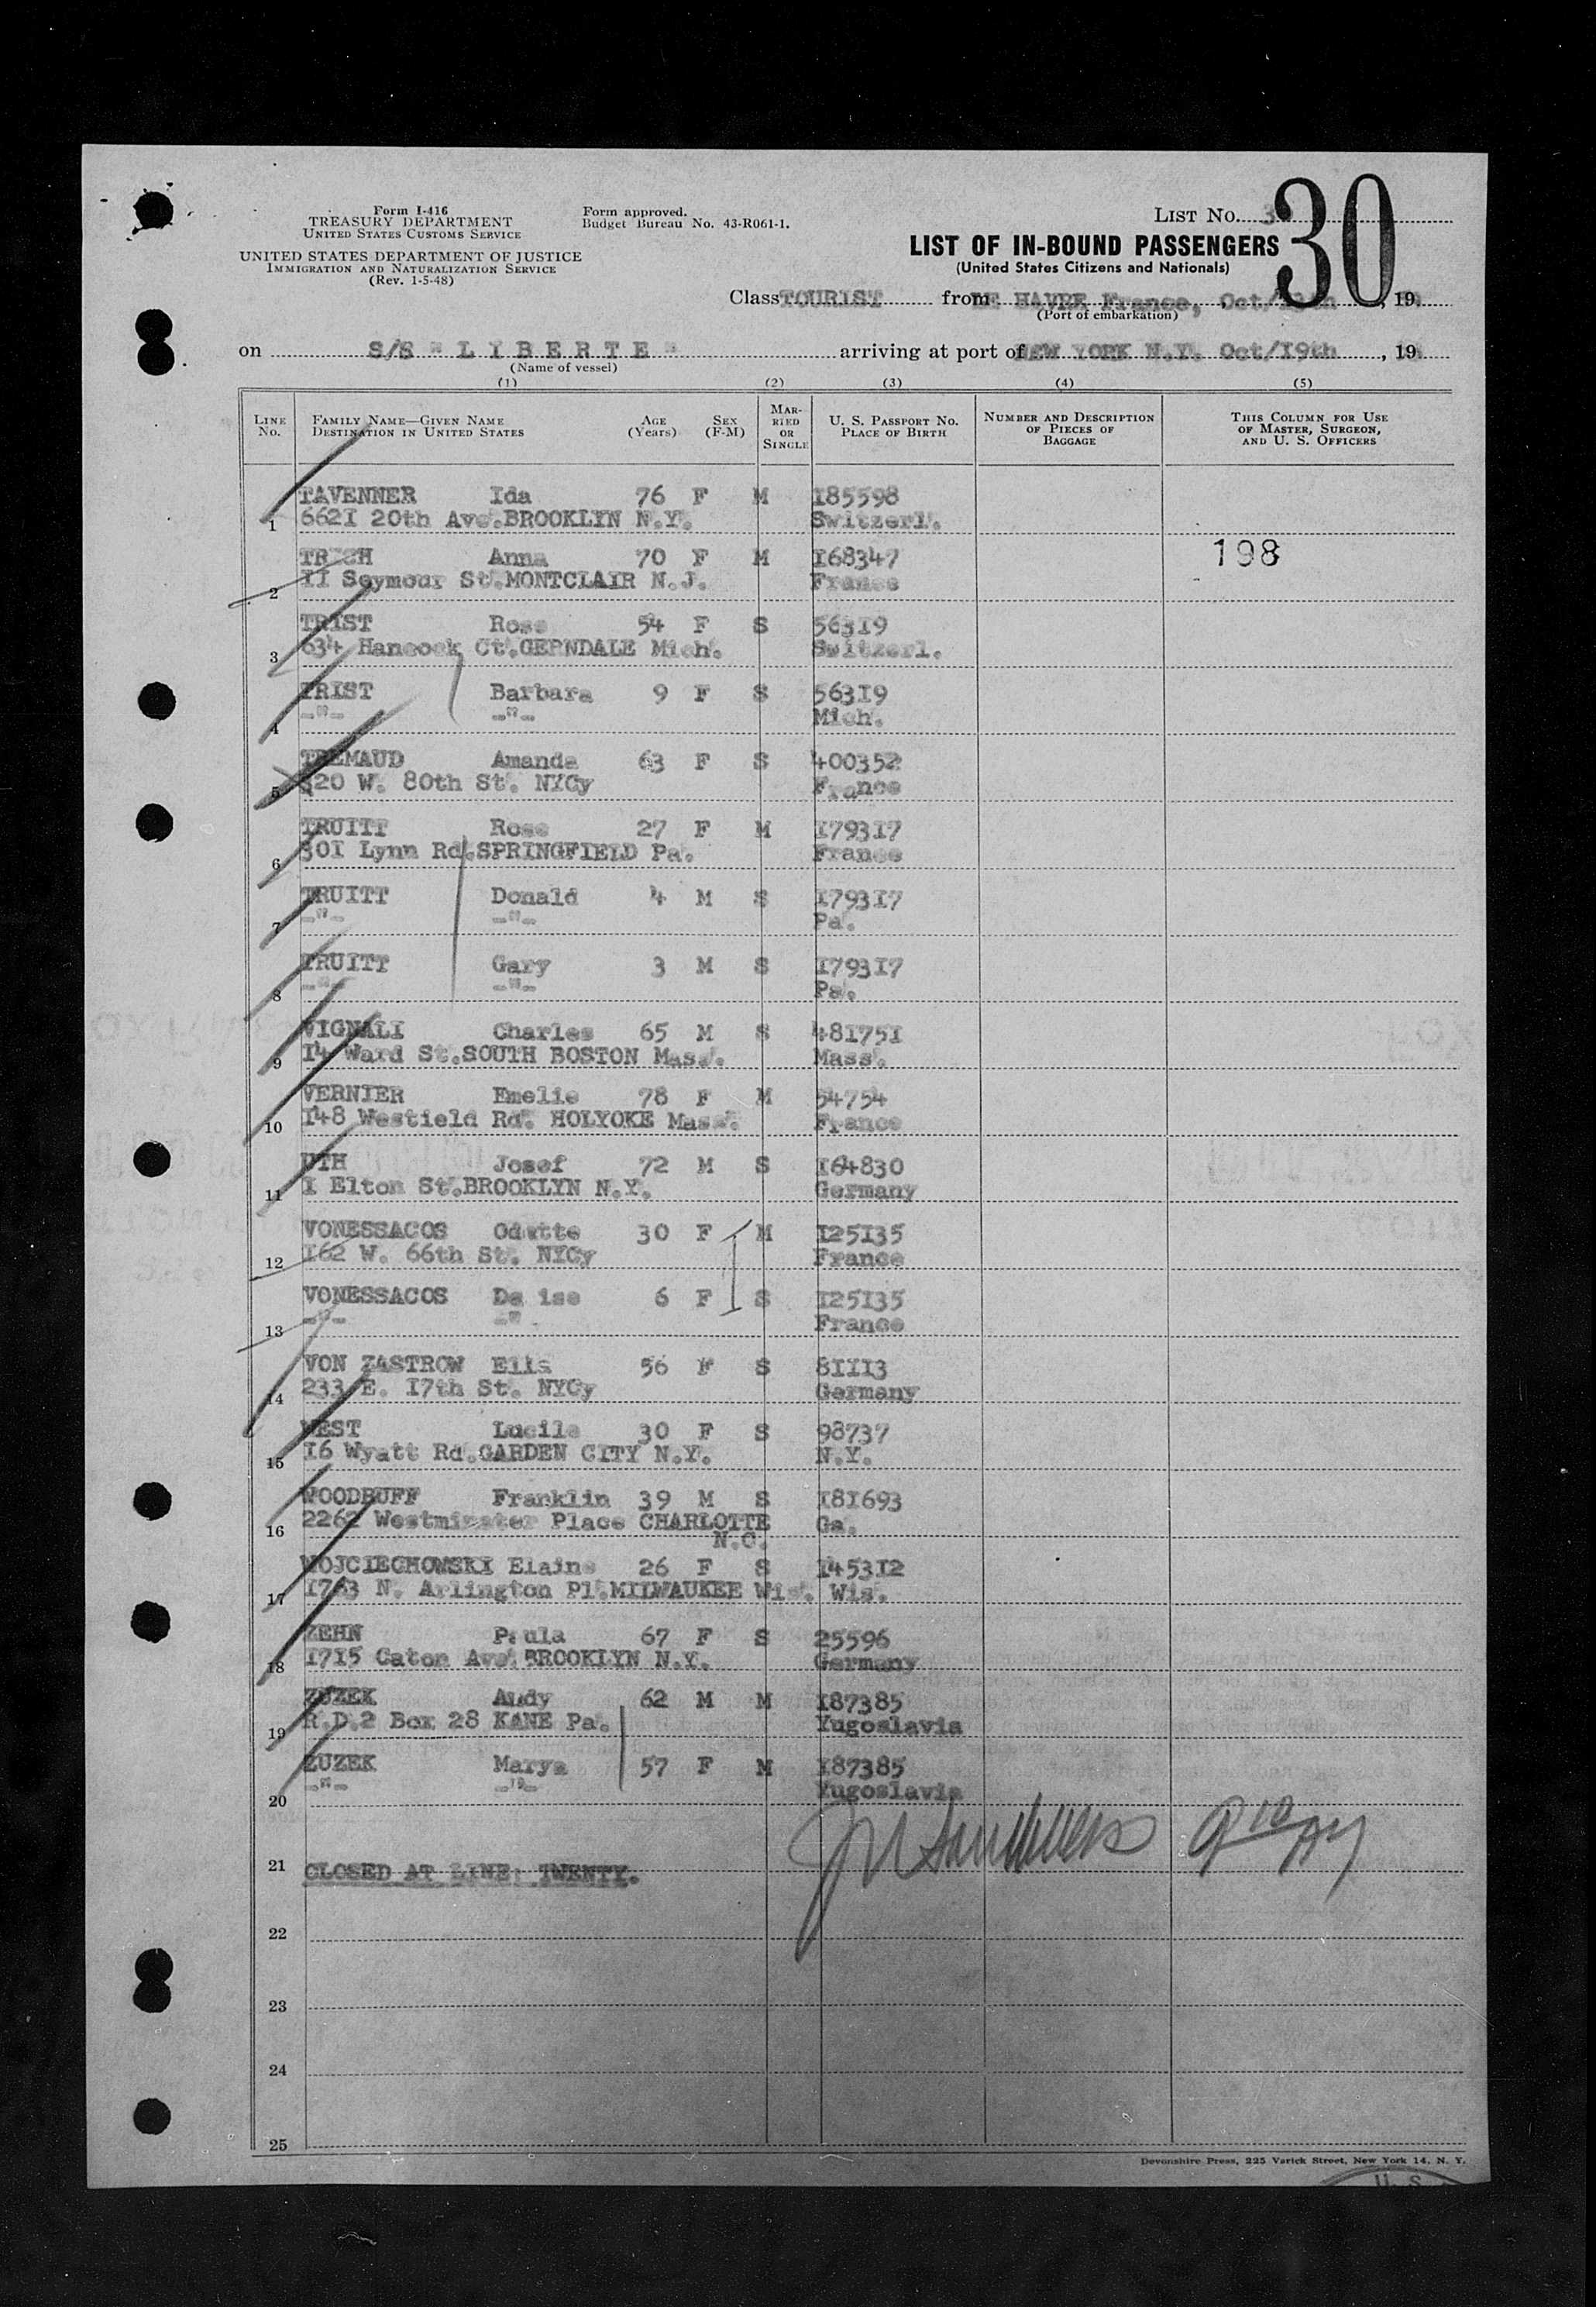 Form I-416
TREASURY DEPARTMENT
UNITED STATES CUSTOMS SERVICE
UNITED STATES DEPARTMENT OF JUSTICE
IMMIGRATION AND NATURALIZATION SERVICE
(Rev. 1-5-48)
Form approved.
Budget Bureau No. 43-R061-1.
LIST No. 3
30
LIST OF IN-BOUND PASSENGERS
(United States Citizens and Nationals)
Class TOURIST from LE HAVRE France, Oct/ , 19
(Port of embarkation)
on S/S "LIBERTE" arriving at port of NEW YORK N.Y. Oct/19th , 19
(Name of vessel)
(1) (2) (3) (4) (5)
LINE No. FAMILY NAME—GIVEN NAME DESTINATION IN UNITED STATES AGE (Years) SEX (F-M) MARRIED OR SINGLE U. S. PASSPORT NO. PLACE OF BIRTH NUMBER AND DESCRIPTION OF PIECES OF BAGGAGE THIS COLUMN FOR USE OF MASTER, SURGEON, AND U. S. OFFICERS
TAVENNER Ida 76 F M I85598
1 662I 20th Ave.BROOKLYN N.Y. Switzerl.
Anna 70 F M I68347 198
2 II Seymour St.MONTCLAIR N.J. France
TRIST Rose 54 F S 563I9
3 634 Hancock Ct.GERNDALE Mich. Switzerl.
TRIST Barbara 9 F S 563I9
4 -"- -"- Mich.
TREMAUD Amanda 63 F S 400352
5 320 W. 80th St. NYCy France
TRUITT Rose 27 F M I793I7
6 30I Lynn Rd.SPRINGFIELD Pa. France
TRUITT Donald 4 M S I793I7
7 -"- -"- Pa.
TRUITT Gary 3 M S I793I7
8 -"- -"- Pa.
VIGNALI Charles 65 M S 48I75I
9 I4 Ward St.SOUTH BOSTON Mass. Mass.
VERNIER Emelie 78 F M 54754
10 I48 Westield Rd. HOLYOKE Mass. France
UTH Josef 72 M S I64830
11 I Elton St.BROOKLYN N.Y. Germany
VONESSACOS Odette 30 F M I25I35
12 I62 W. 66th St. NYCy France
VONESSACOS De ise 6 F S I25I35
13 -"- -" France
VON ZASTROW Ella 56 F S 8III3
14 233 E. I7th St. NYCy Germany
WEST Lucile 30 F S 98737
15 I6 Wyatt Rd.GARDEN CITY N.Y. N.Y.
WOODBUFF Franklin 39 M S I8I693
16 2262 Westminster Place CHARLOTTE Ga.
N.C.
WOJCIECHOWSKI Elaine 26 F S I453I2
17 I763 N. Arlington Pl.MILWAUKEE Wis. Wis.
ZEHN Paula 67 F S 25596
18 I7I5 Caton Ave.BROOKLYN N.Y. Germany
ZUZEK Andy 62 M M I87385
19 R.D.2 Box 28 KANE Pa. Yugoslavia
ZUZEK Marya 57 F M I87385
20 -"- -"- Yugoslavia
21 CLOSED AT LINE: TWENTY.
22
23
24
25
Devonshire Press, 225 Varick Street, New York 14, N. Y.
U. S.